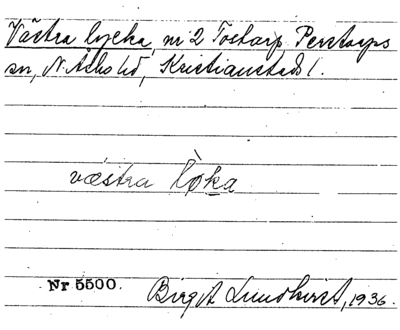 Västra lycka, nr 2 Tostarp, Perstorps
sn, N. Åsbo hd, Kristianstads l.
västra lỳka
Nr 5500. Birgit Lundkvist, 1936.